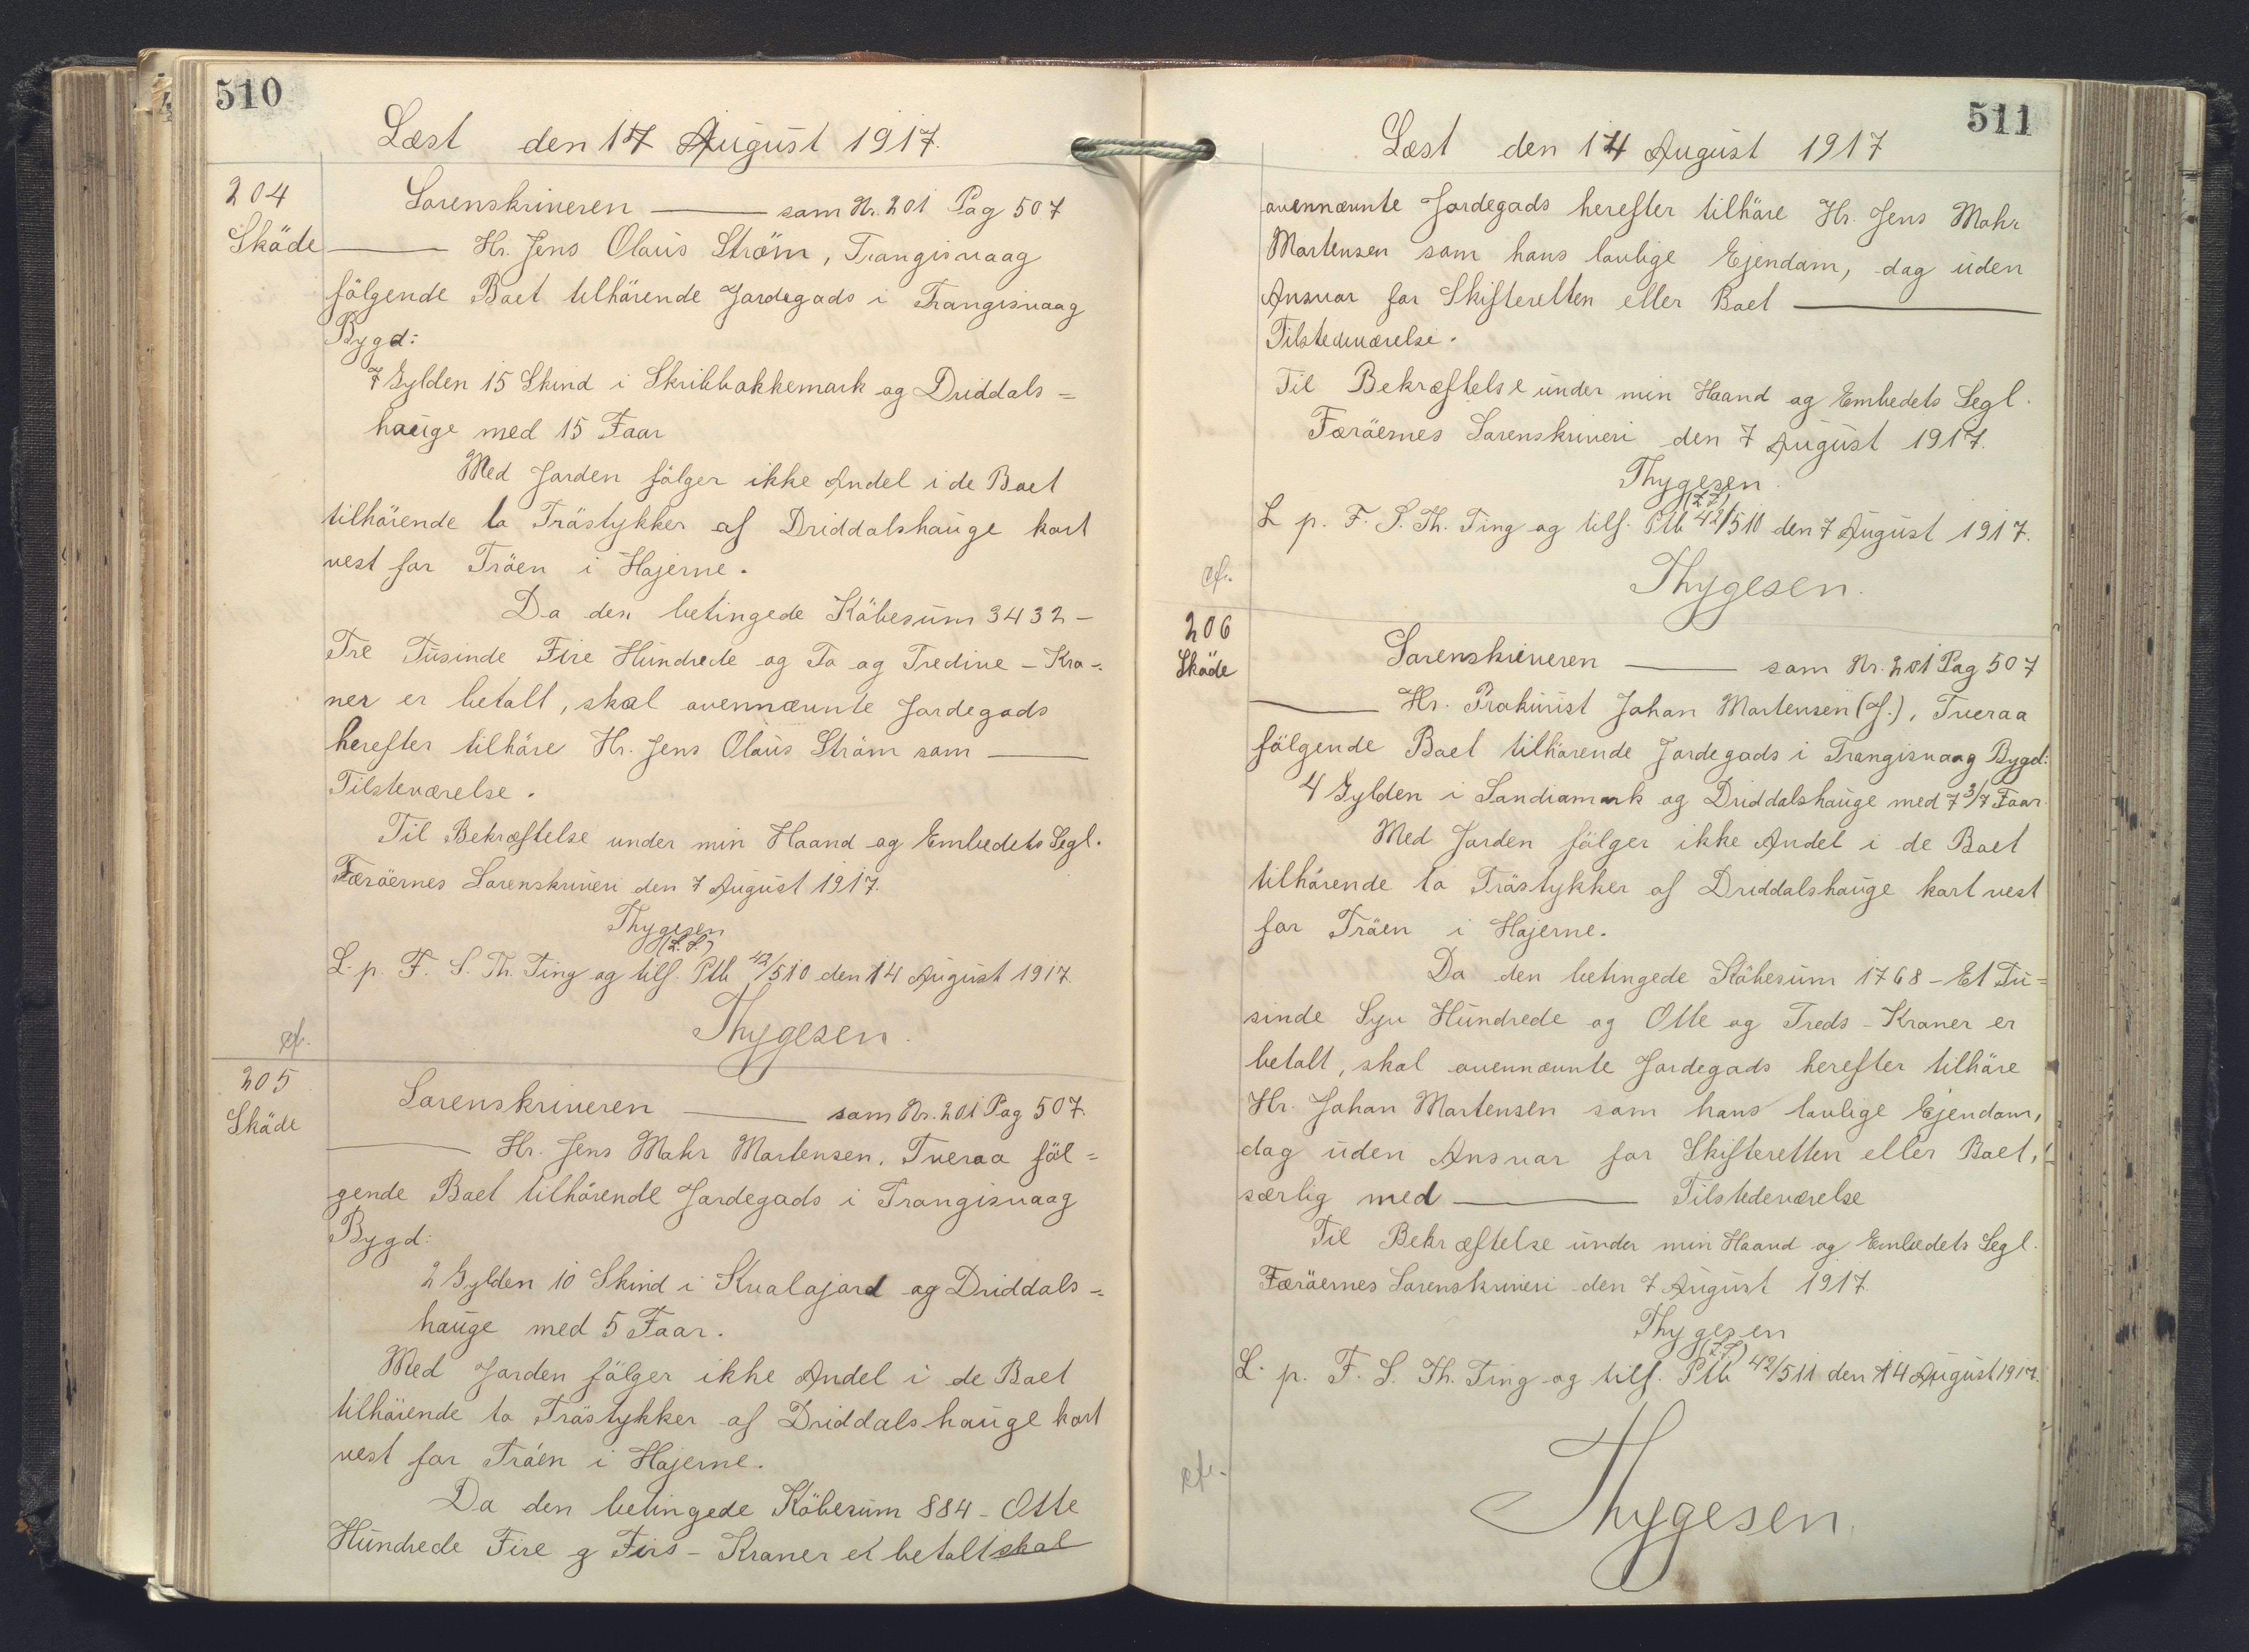 510
Læst den 14 August 1917.
204
Sköde
Sorenskriveren — som Nr. 201 Pag 507
— Hr. Jens Olaus Ström, Trangisvaag
fölgende Boet tilhörende Jordegods i Trangisvaag
Bygd:
7 Gylden 15 Skind i Skribbakkemark og Driddals=
hauge med 15 Faar
Med Jorden fölger ikke Andel i de Boet
tilhörende to Tröstykker af Driddalshauge kort
vest for Tröen i Hojerne.
Da den betingede Köbesum 3432 –
Tre Tusinde Fire Hundrede og To og Tredive – Kro=
ner er betalt, skal ovennævnte Jordegods
herefter tilhöre Hr. Jens Olaus Ström som —
Tilsteværelse.
Til Bekræftelse under min Haand og Embedets Segl.
Færöernes Sorenskriveri den 7 August 1917.
Thygesen
(L.S.)
L. p. F. S. Th. Ting og tilf. Ptb 42/510 den 14 August 1917.
Thygesen.
cfr.
205
Sköde
Sorenskriveren — som Nr. 201 Pag 507.
— Hr. Jens Mohr Mortensen, Tveraa föl=
gende Boet tilhörende Jordegods i Trangisvaag
Bygd:
2 Gylden 10 Skind i Kvalajord og Driddals=
hauge med 5 Faar.
Med Jorden fölger ikke Andel i de Boet
tilhörende to Tröstykker af Driddalshauge kort
vest for Tröen i Hojerne.
Da den betingede Köbesum 884 – Otte
Hundrede Fire g Firs – Kroner er betalt skal
511
Læst den 14 August 1917
ovennævnte Jordegods herefter tilhöre Hr. Jens Mohr
Mortensen som hans lovlige Ejendom, dog uden
Ansvar for Skifteretten eller Boet —
Tilstedeværelse.
Til Bekræftelse under min Haand og Embedets Segl.
Færöernes Sorenskriveri den 7 August 1917.
Thygesen.
(L.S.)
L p. F. S. Th. Ting og tilf. Ptb 42/510 den 7 August 1917.
Thygesen.
cfr.
206
Sköde
Sorenskriveren — som Nr. 201 Pag 507
— Hr. Prokurist Johan Mortensen (J.), Tveraa
fölgende Boet tilhörende Jordegods i Trangisvaag Bygd:
4 Gylden i Sandiamark og Driddalshauge med 7 3/7 Faar.
Med Jorden fölger ikke Andel i de Boet
tilhörende to Tröstykker af Driddalshauge kort vest
for Tröen i Hojerne.
Da den betingede Köbesum 1768 – Et Tu=
sinde Syv Hundrede og Otte og Treds – Kroner er
betalt, skal ovennævnte Jordegods herefter tilhöre
Hr. Johan Mortensen som hans lovlige Ejendom,
dog uden Ansvar for Skifteretten eller Boet,
særlig med — Tilstedeværelse
Til Bekræftelse under min Haand og Embedets Segl.
Færöernes Sorenskriveri den 7 August 1917.
Thygesen
(L.S.)
L. p. F. S. Th. Ting og tilf. Ptb 42/511 den 14 August 1917.
cfr.
Thygesen.